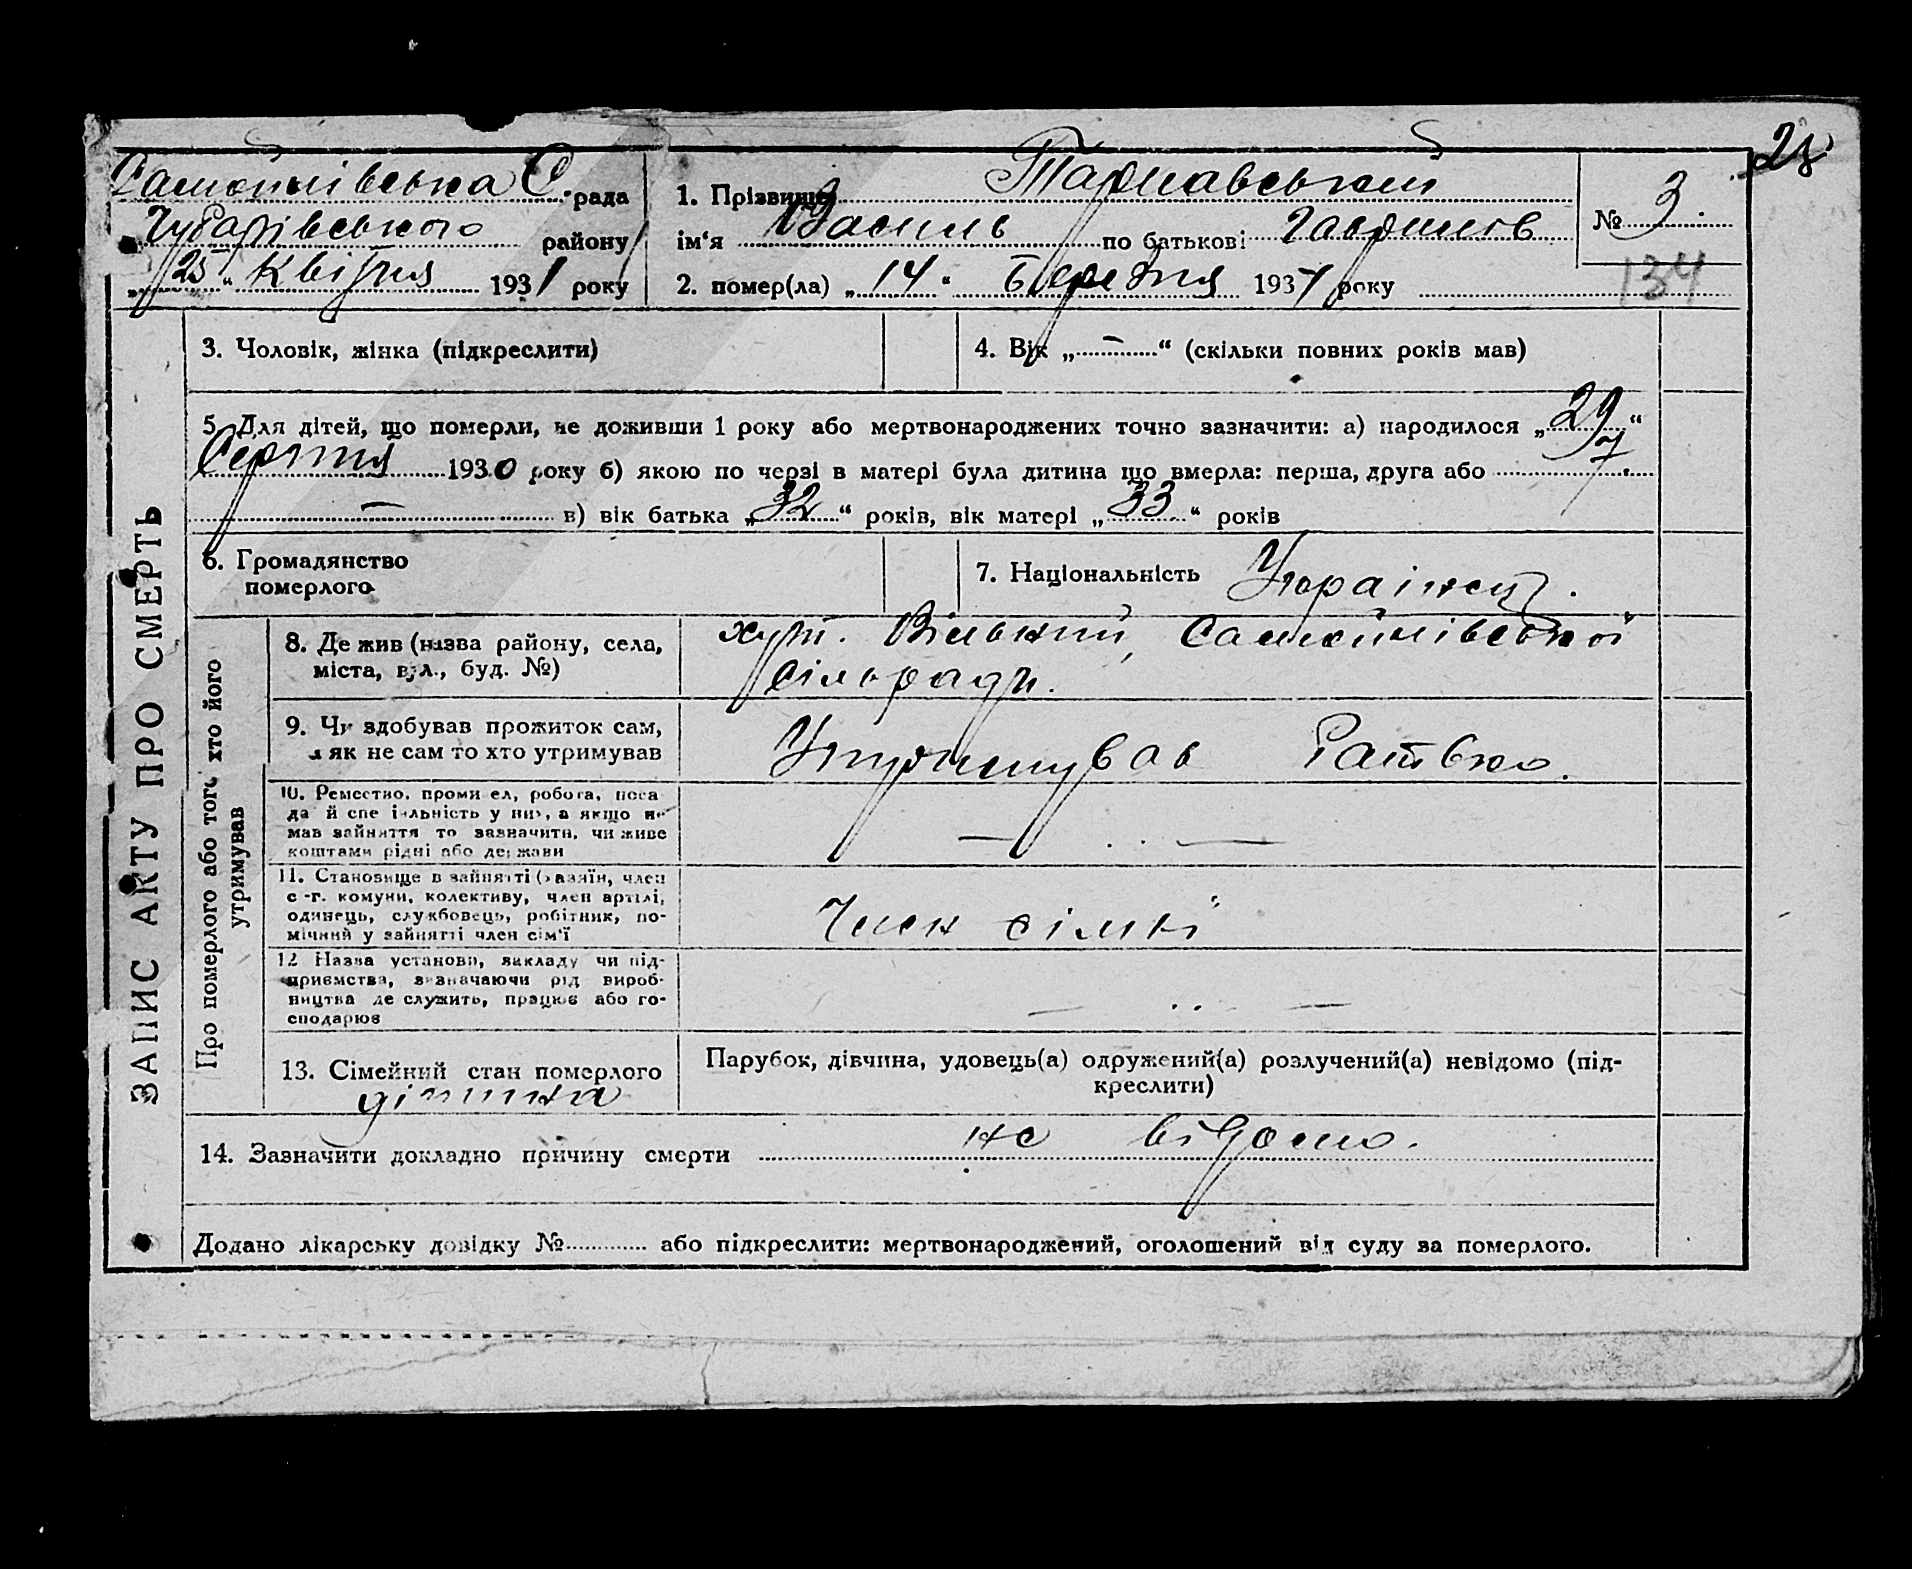 28
Самойлівська С. рада
Чубарівського району
„25“ Квітня 1931 року
1. Прізвище Тарнавський
ім‘я Василь по батькові Гаврилов
2. помер(ла) „14“ Березня 1931 року
№ 3.
134
ЗАПИС АКТУ ПРО СМЕРТЬ
3. Чоловік, жінка (підкреслити)
4. Вік „–“ (скільки повних років мав)
5. Для дітей, що померли, не доживши 1 року або мертвонароджених точно зазначити: а) народилося „29“
Серпня 1930 року б) якою по черзі в матері була дитина що вмерла: перша, друга або 7.
– в) вік батька „32“ років, вік матері „33“ років
6. Громадянство
померлого
7. Національність Українец.
Про померлого або того хто його
утримував
8. Де жив (назва району, села,
міста, вул., буд. №)
хут. Вільний, Самойлівської
сільради.
9. Чи здобував прожиток сам,
а як не сам то хто утримував
Утримував Батько.
10. Ремество, промисел, робота, поса
да й спеціяльність у них, а якщо не
мав зайняття то зазначити, чи живе
коштами рідні або держави
— . . —
11. Становище в зайнятті (хазяїн, член
с.-г. комуни, колективу, член артілі,
одинець, службовець, робітник, по-
мічний у зайнятті член сім'ї
Член сімї
12 Назва установи, закладу чи під-
приємства, зазначаючи рід вироб-
ництва де служить, працює або го-
сподарює
— . . —
13. Сімейний стан померлого
дитина
Парубок, дівчина, удовець(а) одружений(а) розлучений(а) невідомо (під-
креслити)
14. Зазначити докладно причину смерти не відомо.
Додано лікарську довідку № або підкреслити: мертвонароджений, оголошений від суду за померлого.